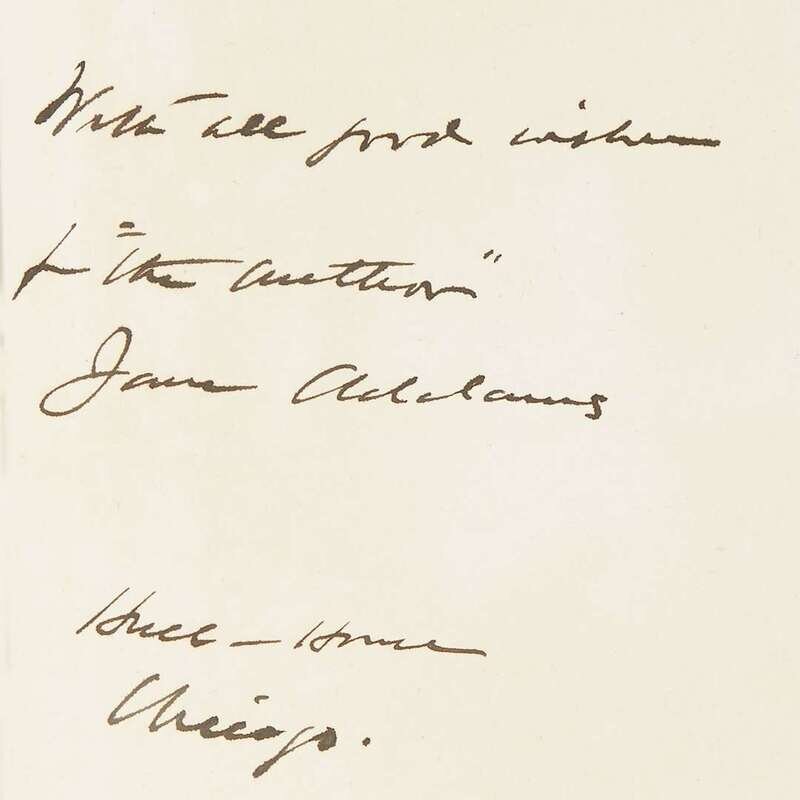 With all good wishes
fr "the author"
Jane Addams
Hull-House
Chicago.